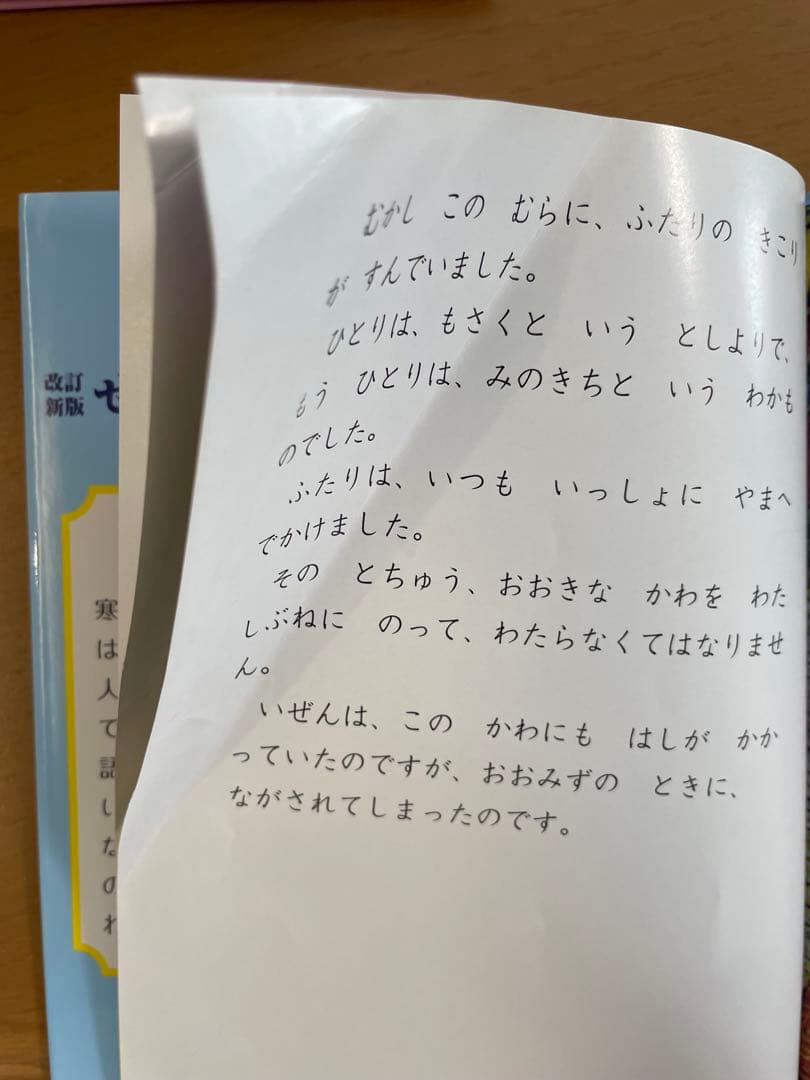 むかし この むらに、ふたりの きこり
が すんでいました。
ひとりは、もさくと いう としよりで、
もう ひとりは、みのきちと いう わかも
のでした。
ふたりは、いつも いっしょに やまへ
でかけました。
その とちゅう、おおきな かわを わた
しぶねに のって、わたらなくてはなりませ
ん。
いぜんは、この かわにも はしが かか
っていたのですが、おおみずの ときに、
ながされてしまったのです。
改訂
新版
寒
は
人
て
話
し
な
の